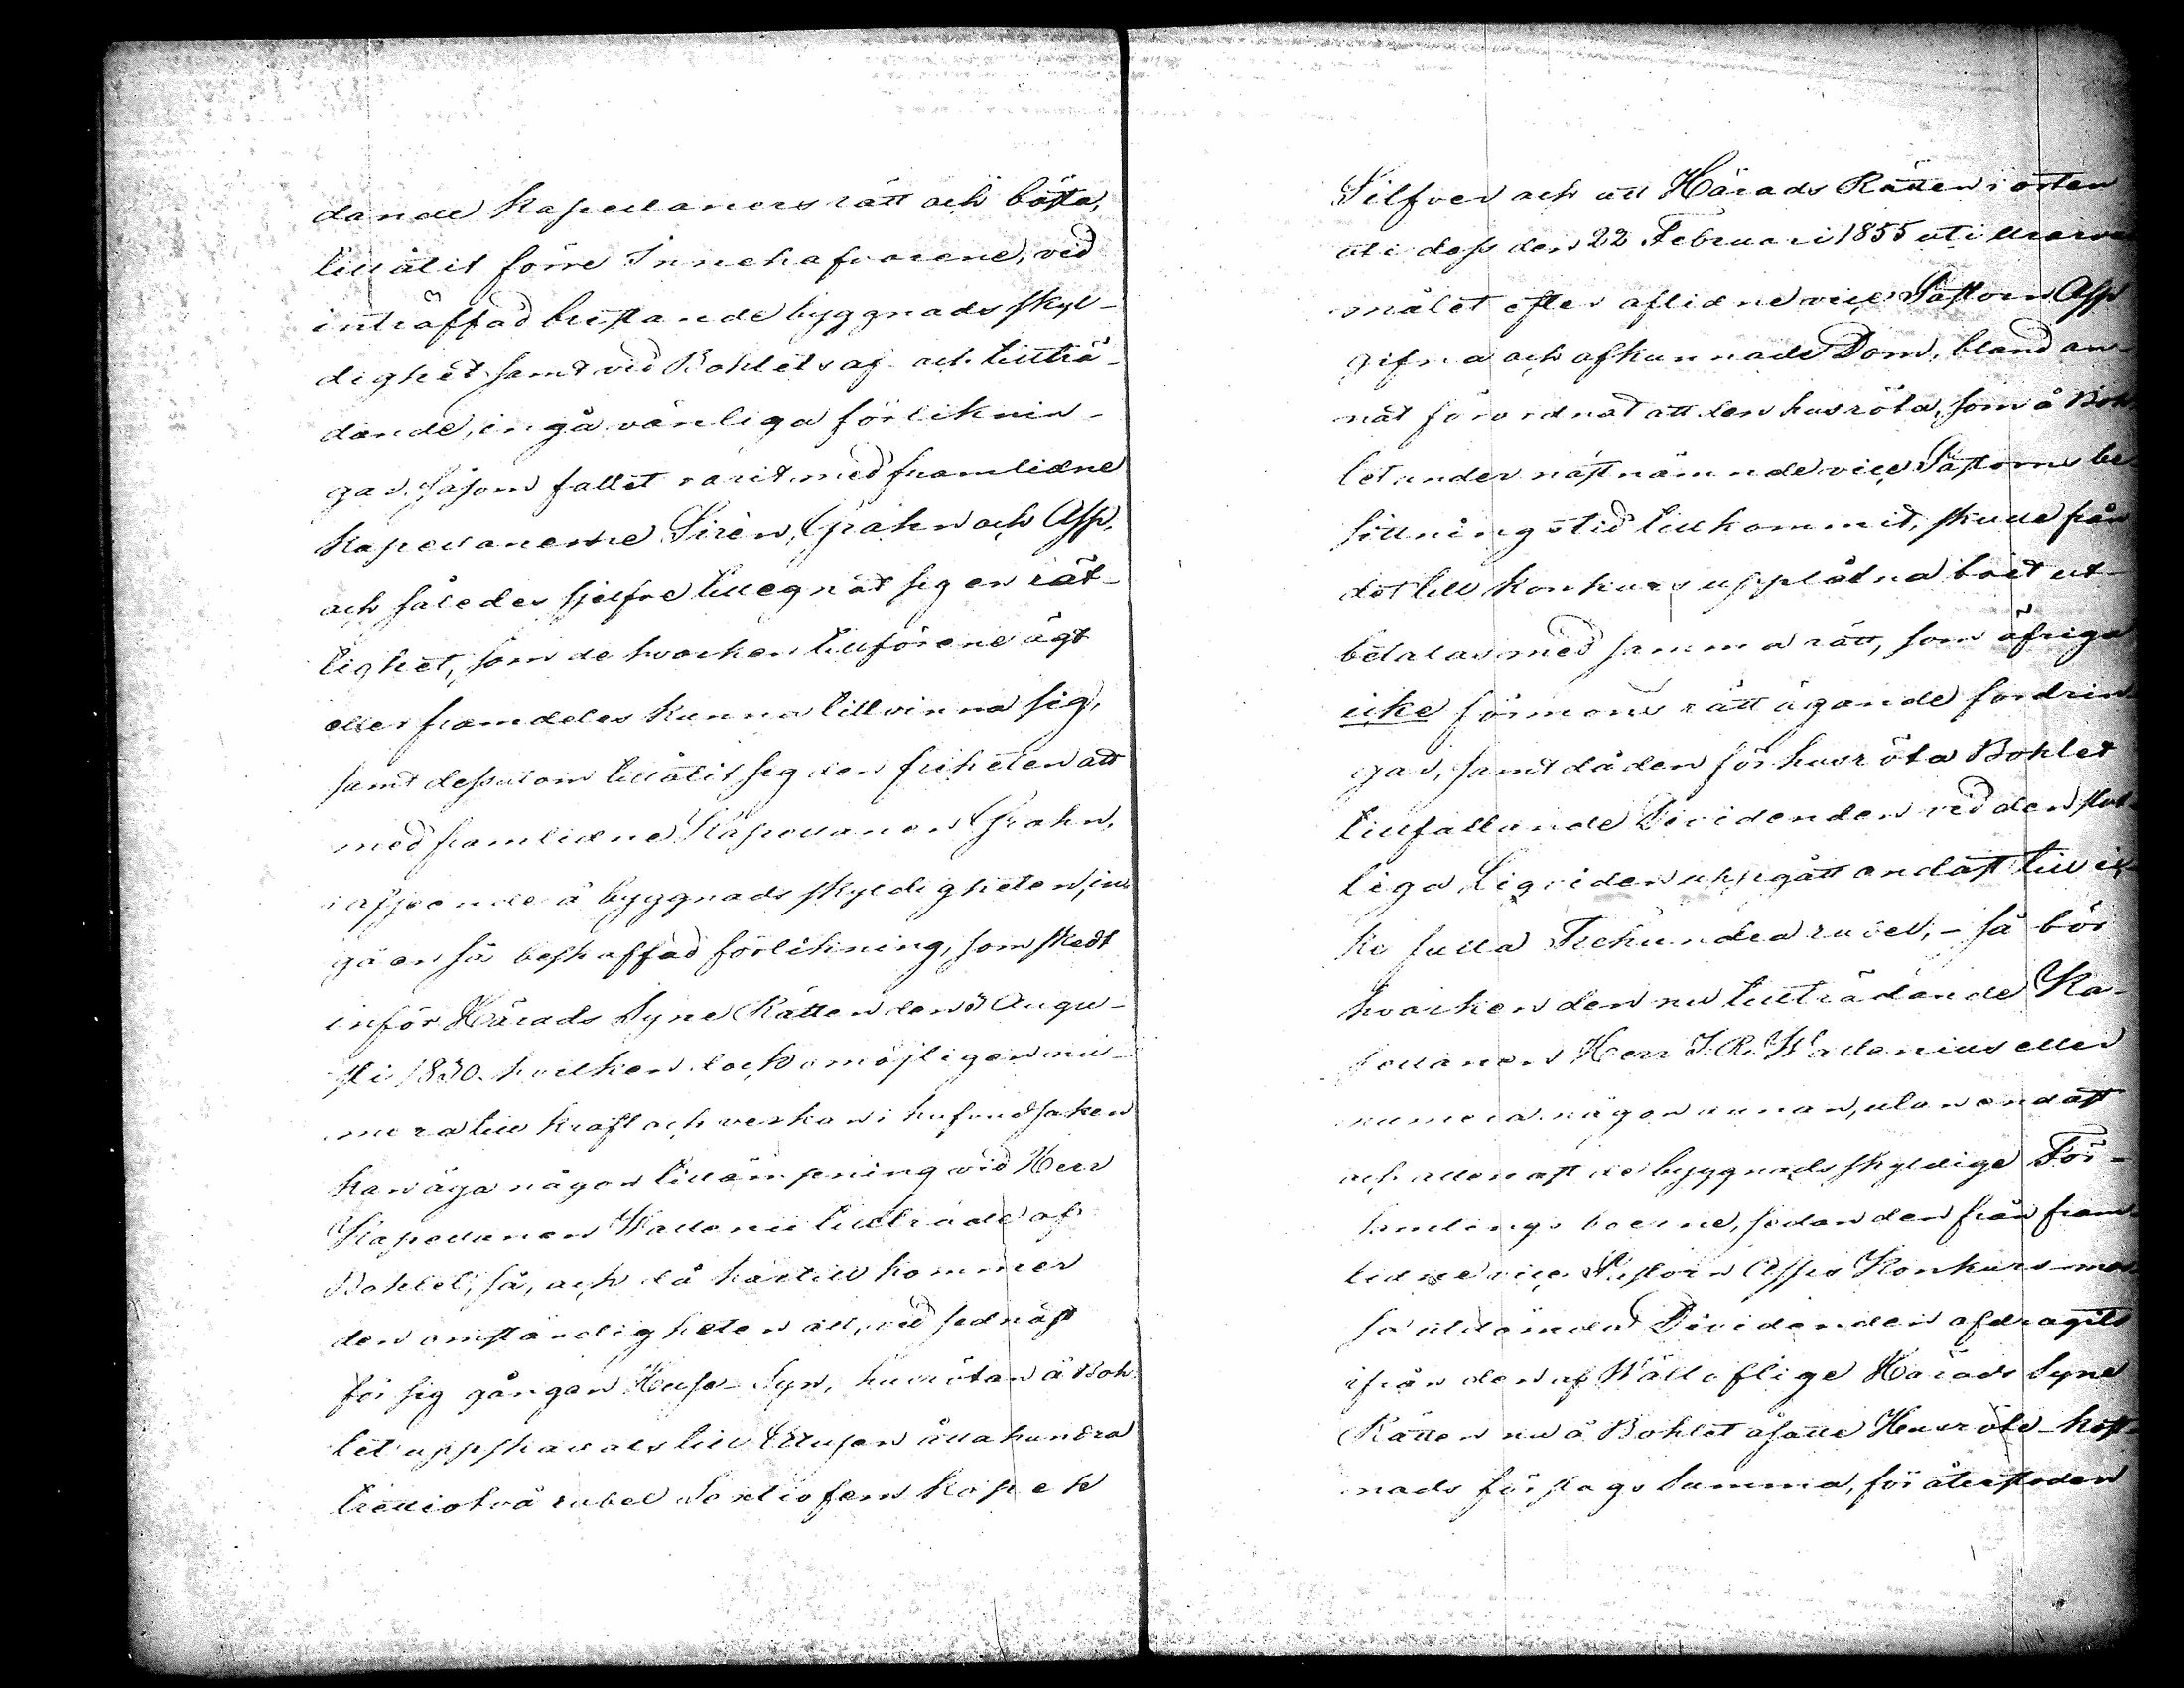 dande Kapellaners rätt och bästa,
tillåtit förre Innehafvarene, vid
inträffad bristande byggnads skyl-
dighet samt vid Bohlets af- och tillträ-
dande, ingå vänliga förliknin-
gar, såsom fallet varit med framlidne
Kapellanerne Sirèn, Grahn och Asp,
och således sjelfve tillegnat sig en rät-
tighet, som de hvarken tillförene ägt
eller framdeles kunna tillvinna sig,
samt dessutom tillåtit sig den friheten att
med framlidne Kapellanen Grahn,
i afseende å byggnads skyldigheten, in-
gå en så beskaffad förlikning, som skedt
inför Härads Syne Rätten den 3 Augu-
sti 1830. hvilken dock omöjligen nu-
mera till kraft och verkan i hufvudsaken
kan äga någon tillämpning vid Herr
Kapellanen Walleni tillträde af
Bohlet, så, och då härtill kommer
den omständigheten att, vid sednast
för sig gången Huse-Syn, husrötan å Boh-
let uppskattats till Ettusen åttahundra
trettiotvå rubel Sextiofem Kopek
Silfver och att Härads Rätten i orten
uti dess den 22 Februari 1855 uti
målet efter aflidne vice Pastorn Asp
gifna och afkunnade Dom, bland an-
nat förordnat att den husröta, som å Boh-
let under näst nämnde vice Pastorns be-
sittningstid tillkommit, skulle från
det till konkurs upplåtna boet ut-
betalas med samma rätt, som öfriga
icke förmons rätt ägande fordrin-
gar, samt då den för husröta Bohlet
tillfallande Dividenden vid den slut-
liga Liqviden uppgått endast till ic-
ke fulla Trehundra rubel, - så bör
hvarken den nu tillträdande Ka-
pellanen Herr J. R. Wallenius eller
numera någon annan, utan endast
och allenast de byggnads skyldige För-
samlings boerne, sedan den från fram-
lidne vice Pastorn Asps Konkurs mas-
sa utdömda Dividenden afdragits
ifrån den af Wällofliga Härads Syne
Rätten nu å Bohlet åsatte Husröte-kost-
nads förslags Summa, för återstoden